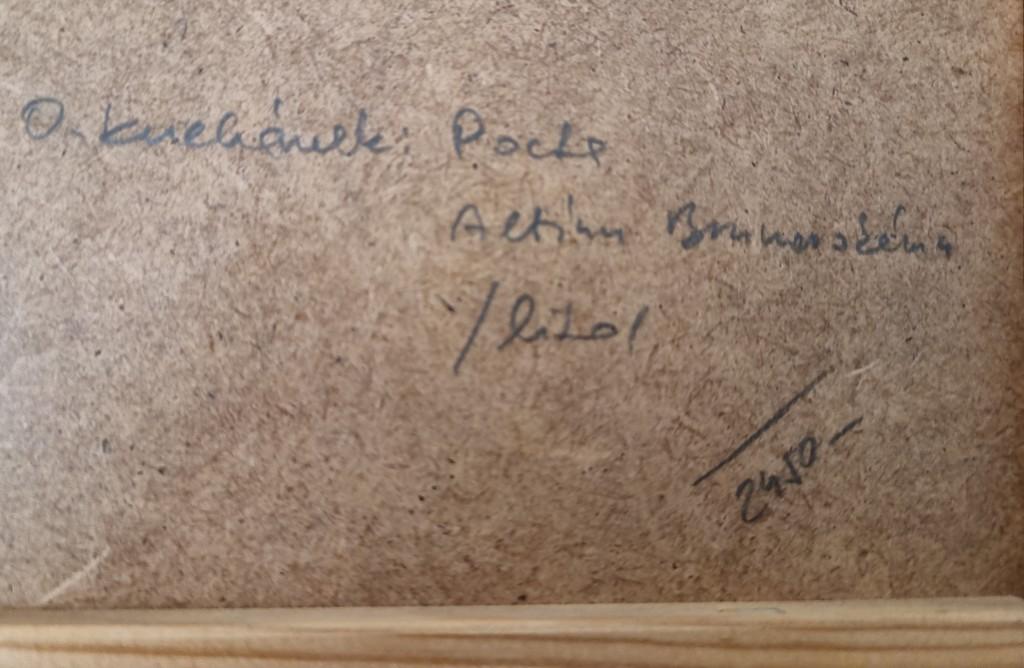 O. Kuchánek: Pocta
Albínu Brunovskému
/litol
2450-